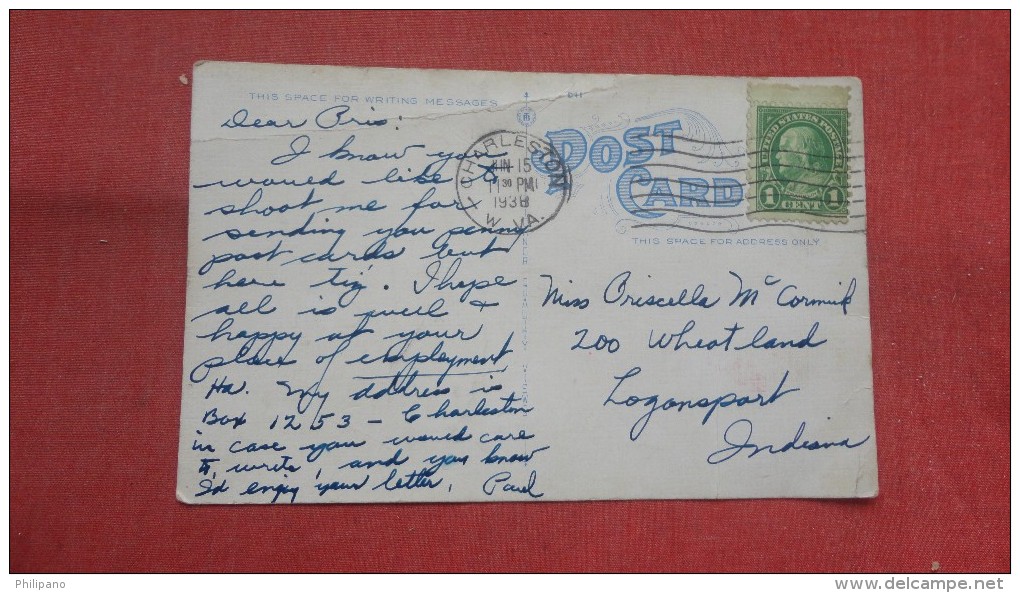 THIS SPACE FOR WRITING MESSAGES
Dear Pris:
I know you
would like to
shoot me for
sending you penny
post cards but
here tis. I hope
all is well &
happy at your
place of employment
Ha. My address is
Box 1253 - Charleston
in case you would care
to write, and you know
I'd enjoy your letter, Paul
CHARLESTON
JUN 15
11 30 PM
1938
W. VA.
POST
CARD
THIS SPACE FOR ADDRESS ONLY
UNITED STATES POSTAGE
1 CENT 1
Miss Priscella McCormick
200 Wheatland
Logansport
Indiana
Philipano
www.delcampe.net